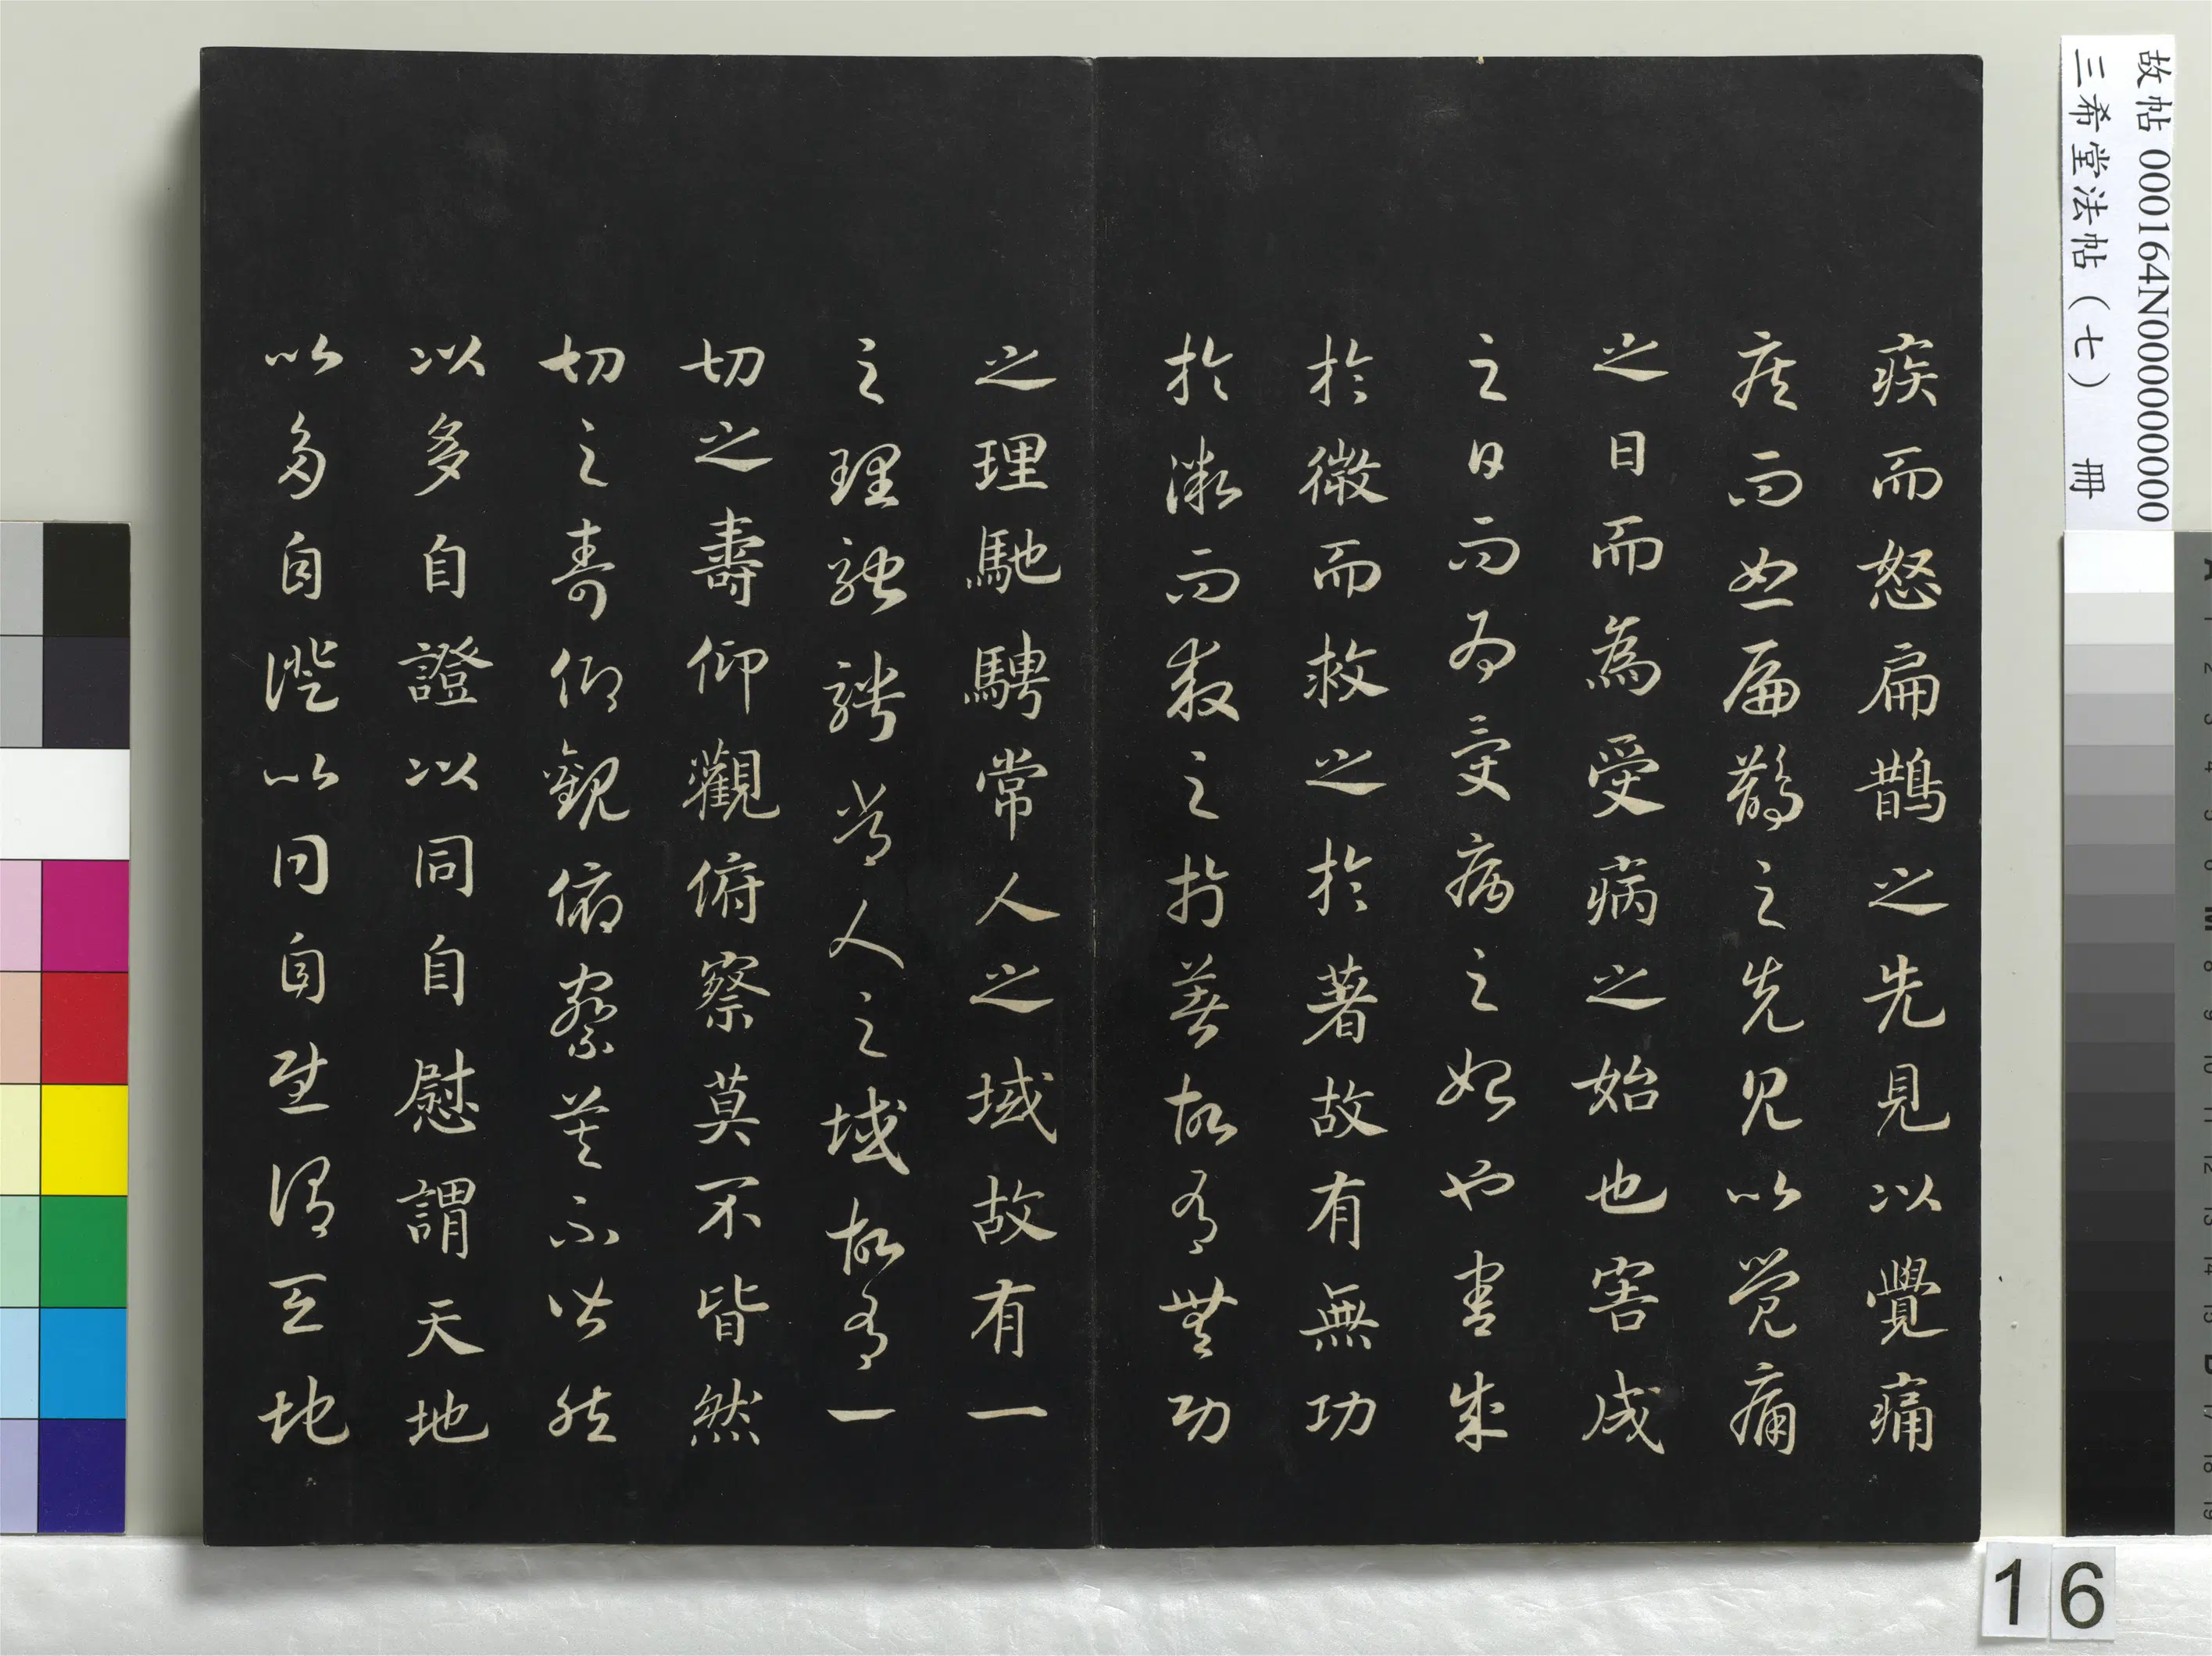 疾而怒扁鵲之先見以覺痛
疾而怒扁鵲之先見以覺痛
之日而為受病之始也害成
之日而為受病之始也害成
於微而救之於著故有無功
於微而救之於著故有無功
之理馳騁常人之域故有一
之理馳騁常人之域故有一
切之壽仰觀俯察莫不皆然
切之壽仰觀俯察莫不皆然
以多自證以同自慰謂天地
以多自證以同自慰謂天地
故帖 000164N000000000
三希堂法帖（七） 冊
16